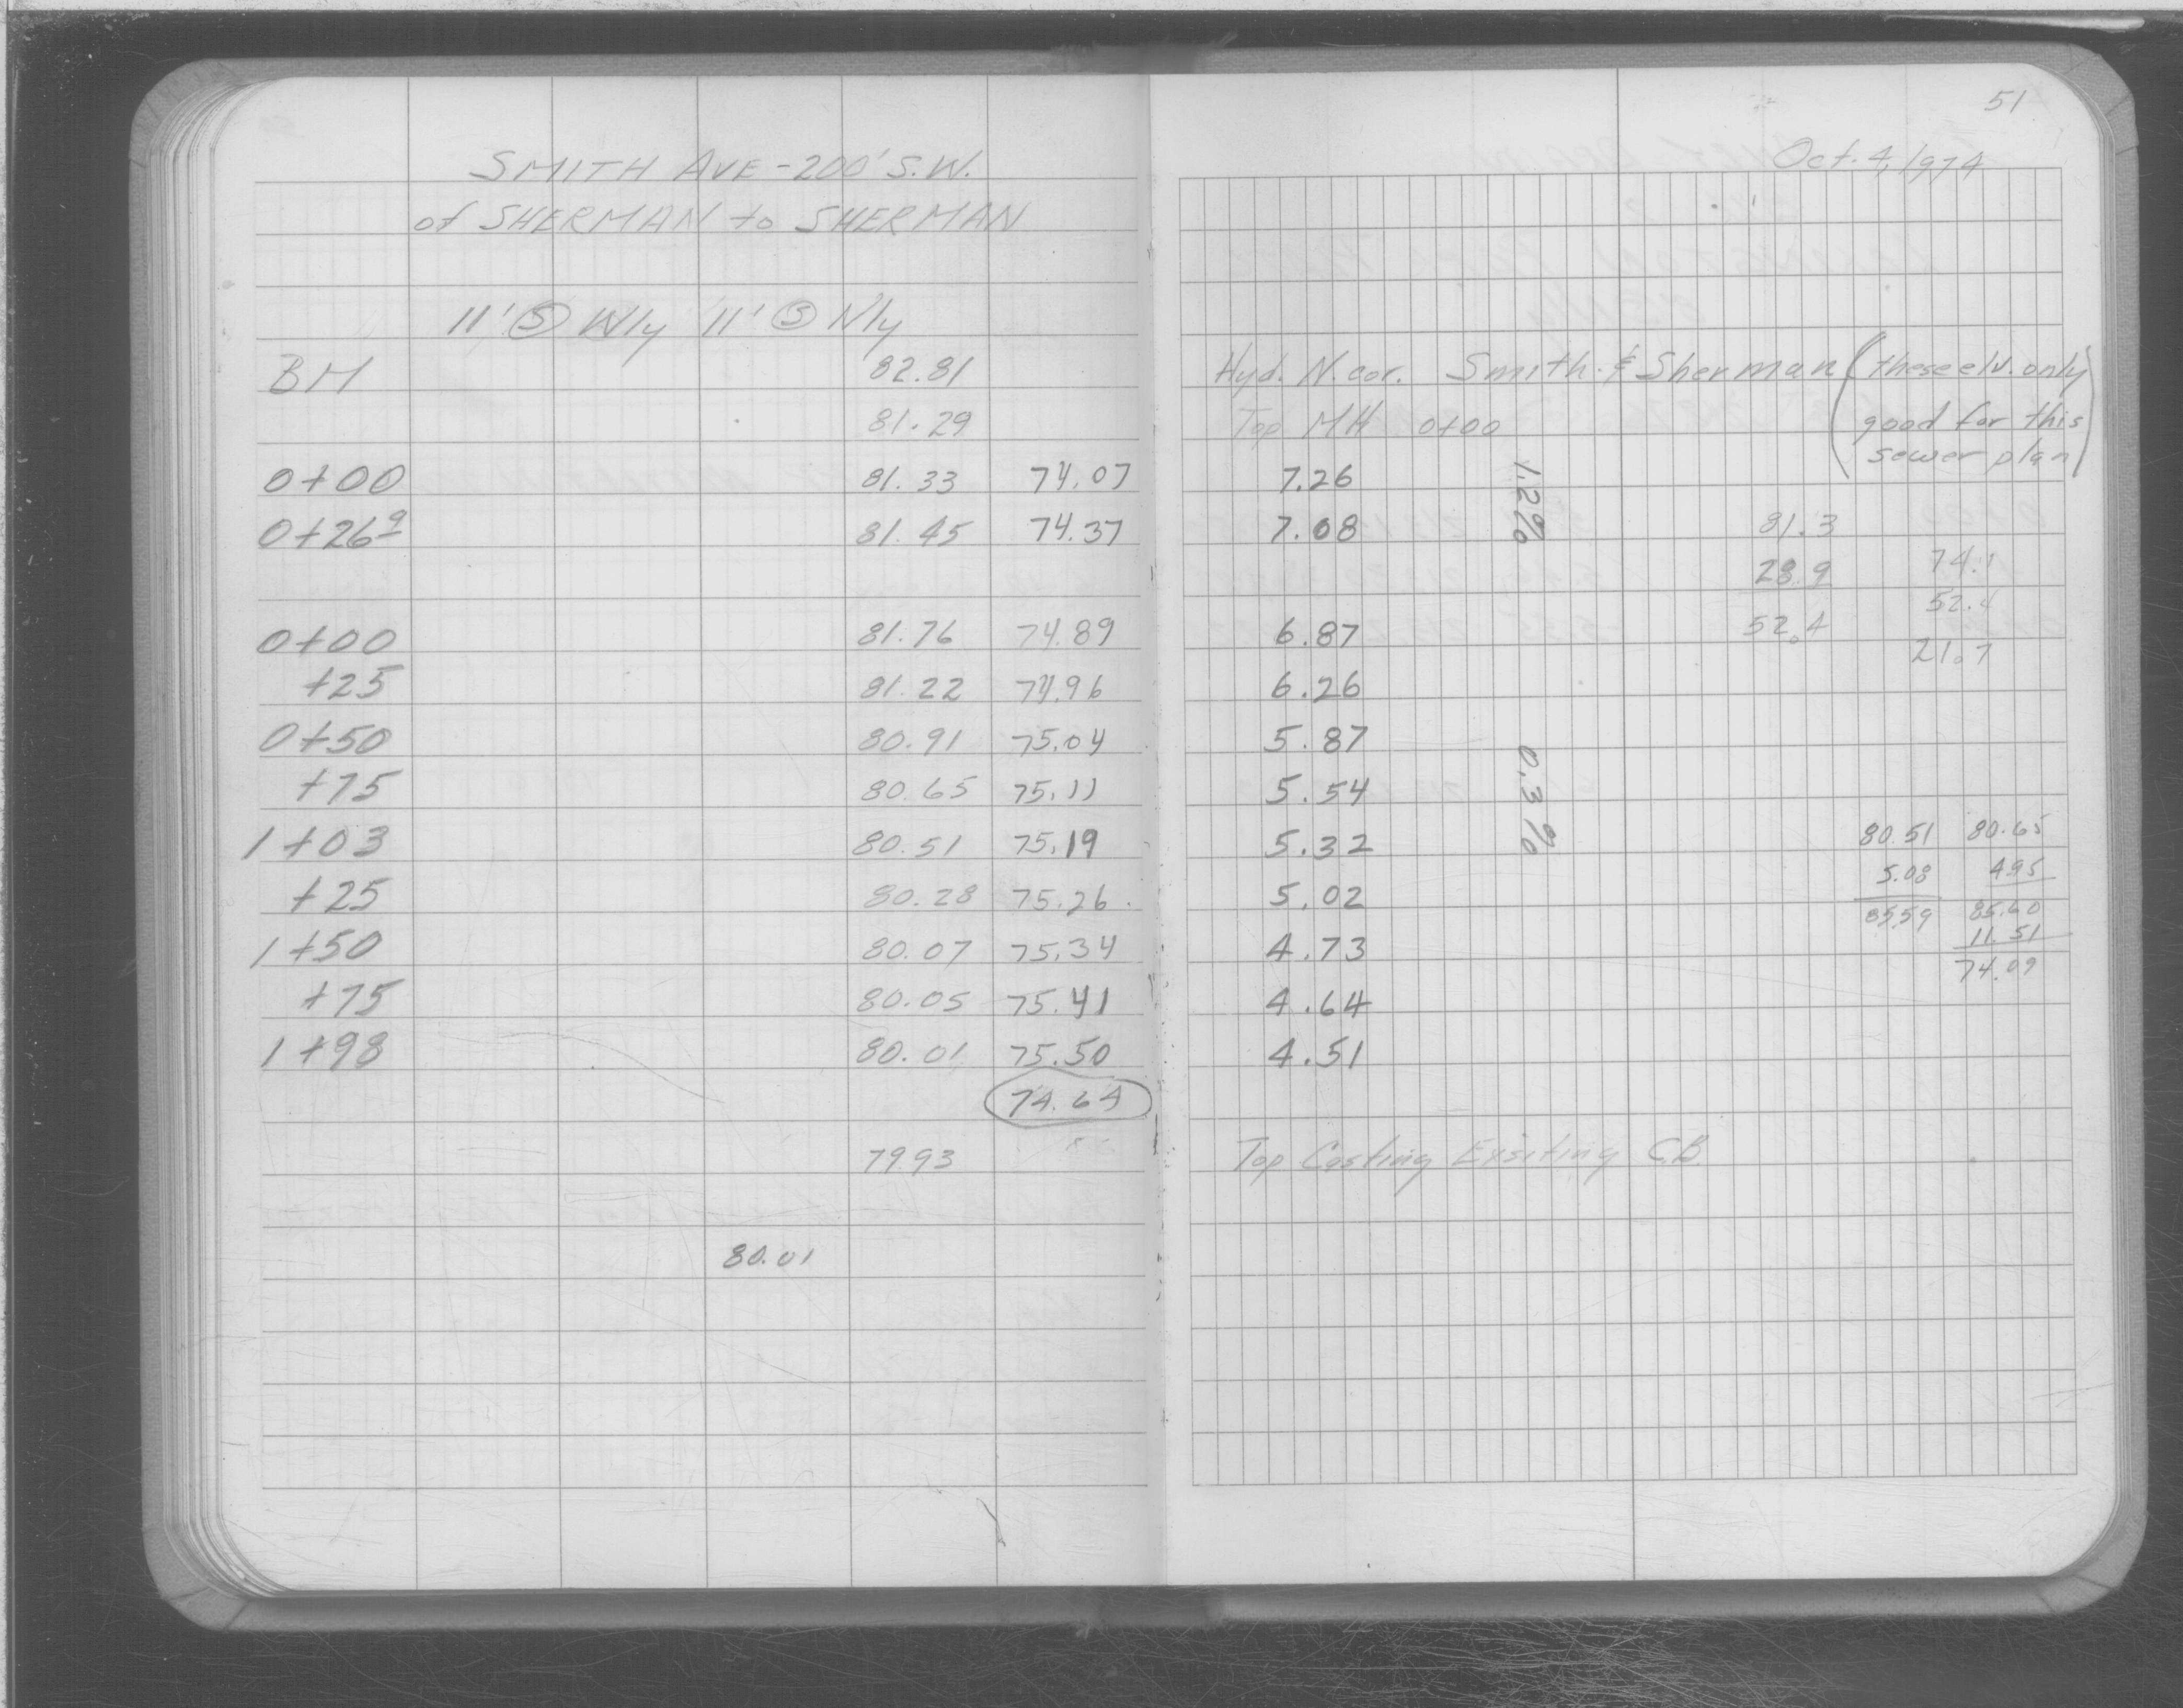 51
SMITH AVE - 200' S.W.
of SHERMAN to SHERMAN
Oct. 4, 1974
11' Ⓢ Wly 11' Ⓢ Nly
BM 82.81 Hyd. N. cor. Smith & Sherman (these elv. only
81.29 Top MH 0+00 good for this
sewer plan)
0+00 81.33 74.07 7.26
1.2%
0+26⁹ 81.45 74.37 7.08 81.3
28.9 74.1
52.4
0+00 81.76 74.89 6.87 52.4
21.7
+25 81.22 74.96 6.26
0+50 80.91 75.04 5.87
+75 80.65 75.11 5.54
0.3%
1+03 80.51 75.19 5.32 80.51 80.65
+25 80.28 75.26 5.02 5.08 4.95
85.59 85.60
1+50 80.07 75.34 4.73 11.51
74.09
+75 80.05 75.41 4.64
1+98 80.01 75.50 4.51
74.64
79.93 Top Casting Exsiting C.B.
80.01